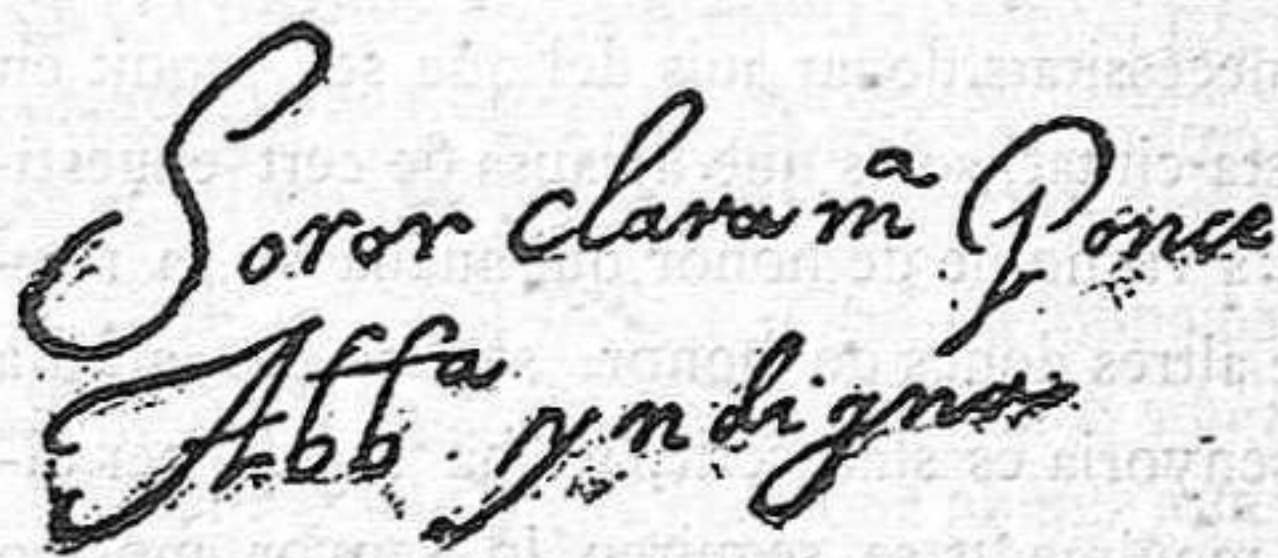 Soror clara mª Ponce
Abbª yndigna